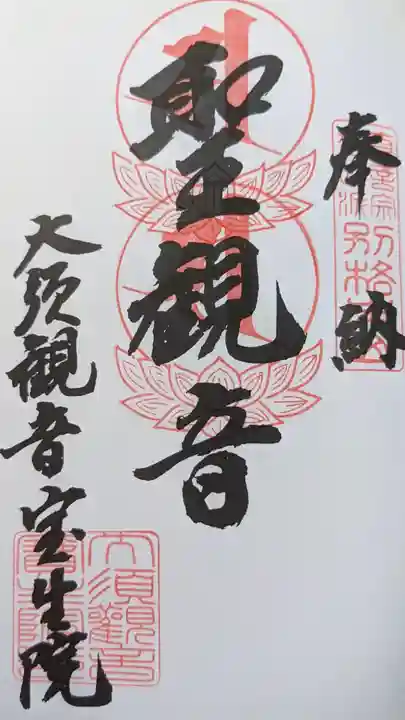 奉納
聖観音
大須観音宝生院
別格
大須觀音